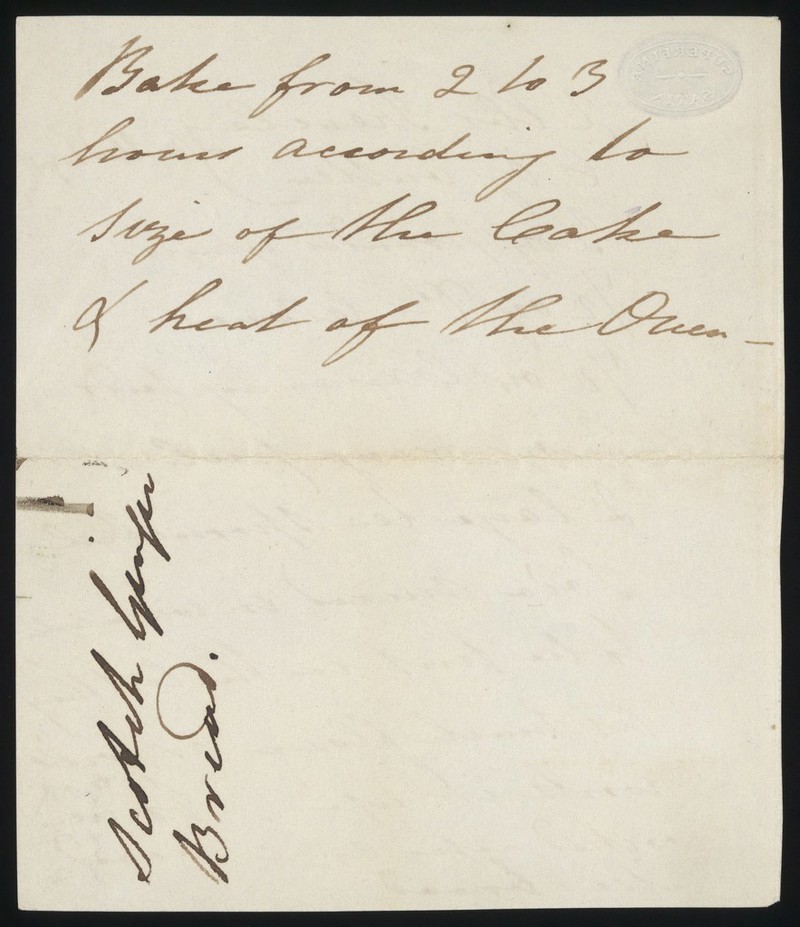 Bake from 2 to 3
hours according to
size of the Cake
& heat of the Oven —
Scotch Ginger
Bread.